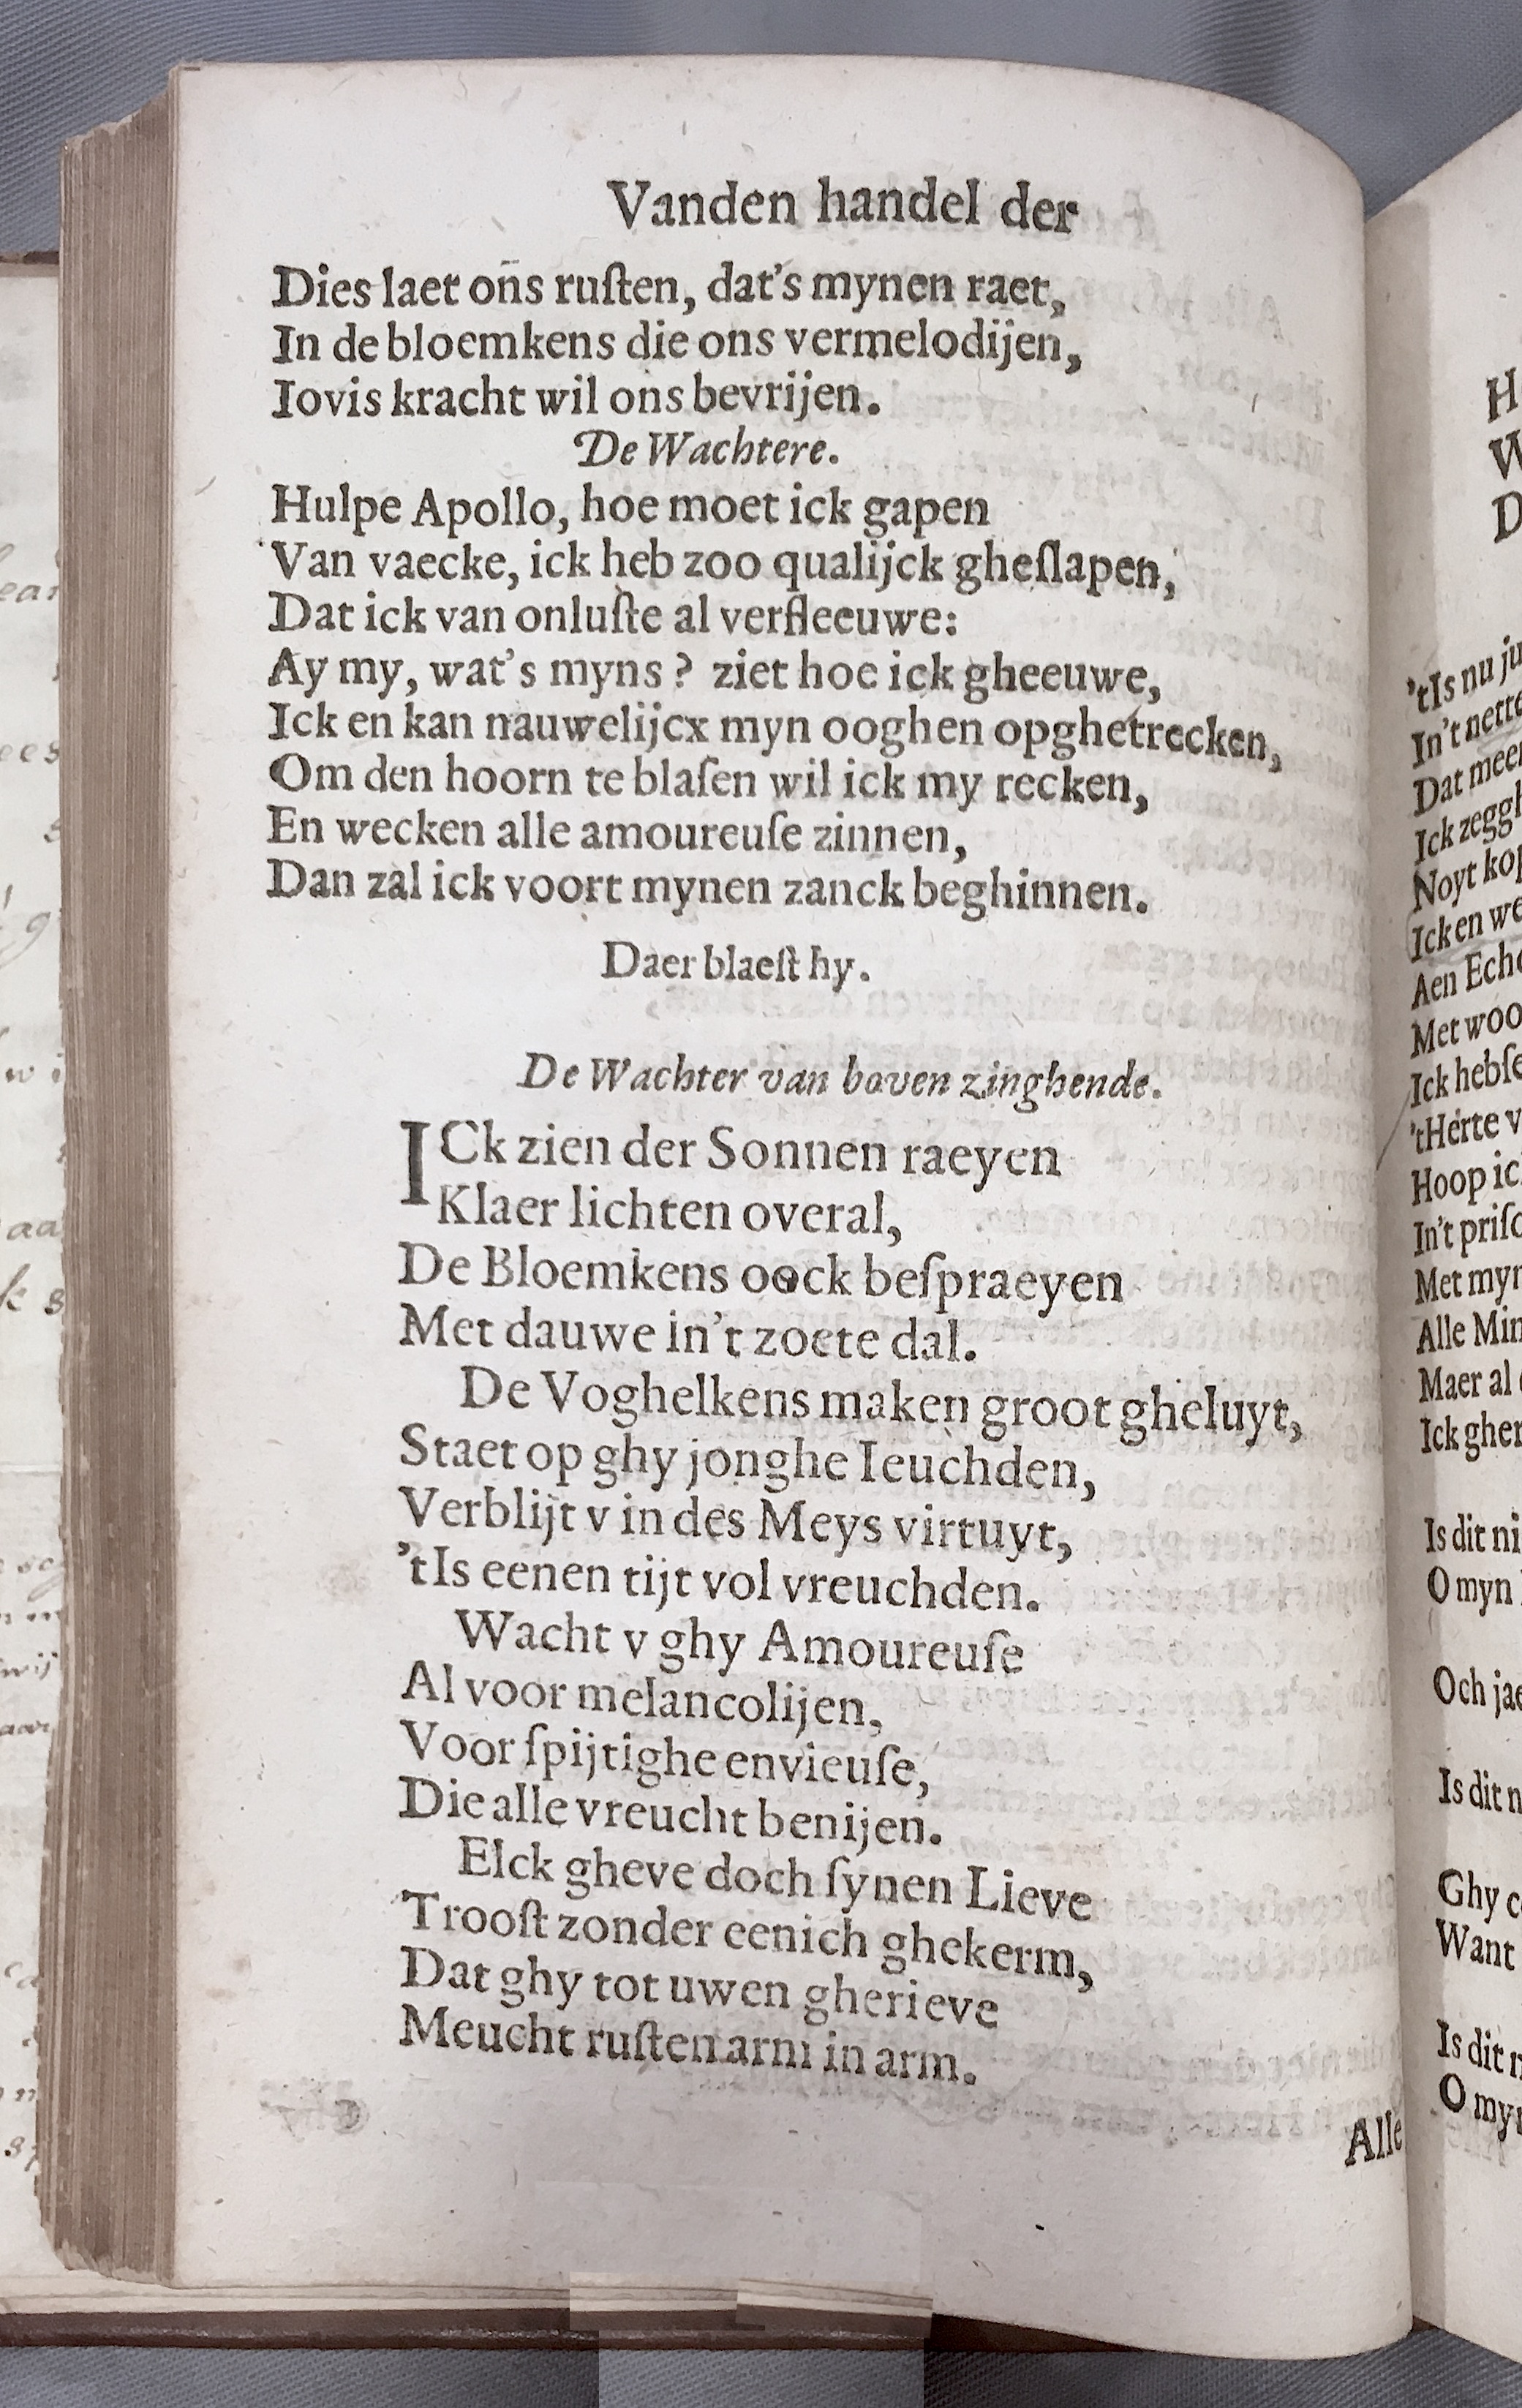 Vanden handel der
Dies laet oñs ruſten, dat's mynen raet,
In de bloemkens die ons vermelodijen,
Iovis kracht wil ons bevrijen.
De Wachtere.
Hulpe Apollo, hoe moet ick gapen
Van vaecke, ick heb zoo qualijck gheſlapen,
Dat ick van onluſte al verfleeuwe:
Ay my, wat's myns? ziet hoe ick gheeuwe,
Ick en kan nauwelijcx myn ooghen opghetrecken,
Om den hoorn te blaſen wil ick my recken,
En wecken alle amoureuſe zinnen,
Dan zal ick voort mynen zanck beghinnen.
Daer blaeſt hy.
De Wachter van boven zinghende.
ICk zien der Sonnen raeyen
Klaer lichten overal,
De Bloemkens oock beſpraeyen
Met dauwe in't zoete dal.
De Voghelkens maken groot gheluyt,
Staet op ghy jonghe Ieuchden,
Verblijt v in des Meys virtuyt,
'tIs eenen tijt vol vreuchden.
Wacht v ghy Amoureuſe
Al voor melancolijen,
Voor ſpijtighe envieuſe,
Die alle vreucht benijen.
Elck gheve doch ſynen Lieve
Trooſt zonder eenich ghekerm,
Dat ghy tot uwen gherieve
Meucht ruſten arm in arm.
Alle
'tIs nu
In't
Dat
Ick
Noyt
Ick en
Aen
Met
Ick
'tHerte
Hoop
In't
Met
Alle
Maer al
Ick
Is dit
O myn
Och
Is dit
Ghy
Want
Is dit
O